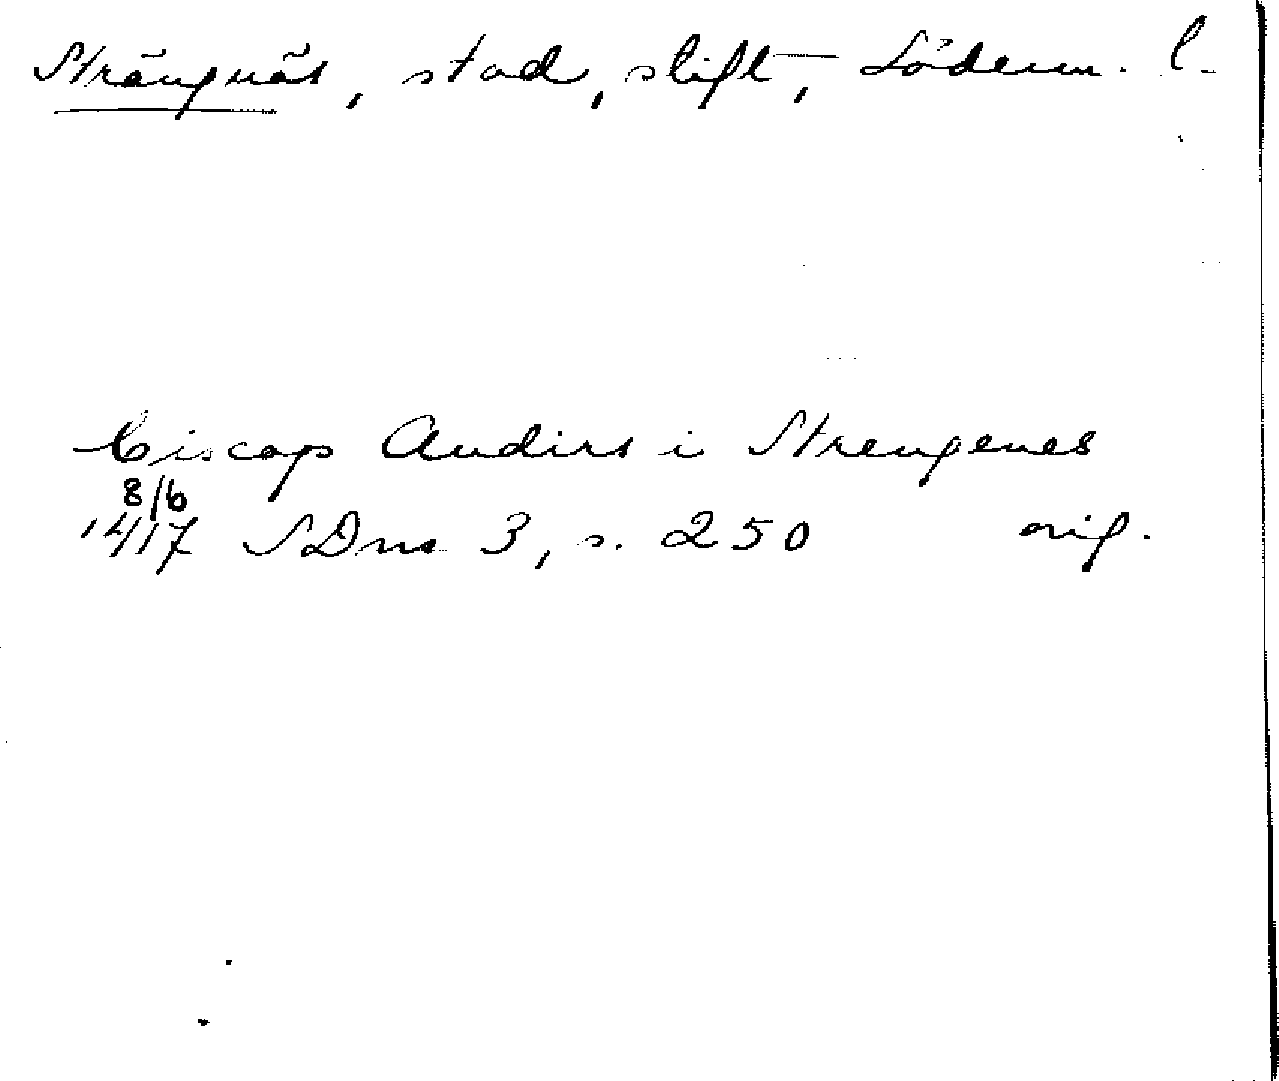 Strängnäs, stad, stift, Söderm. l.
biscop Andirs i Strengenes
8/6
1417 SDns 3, s. 250 orig.